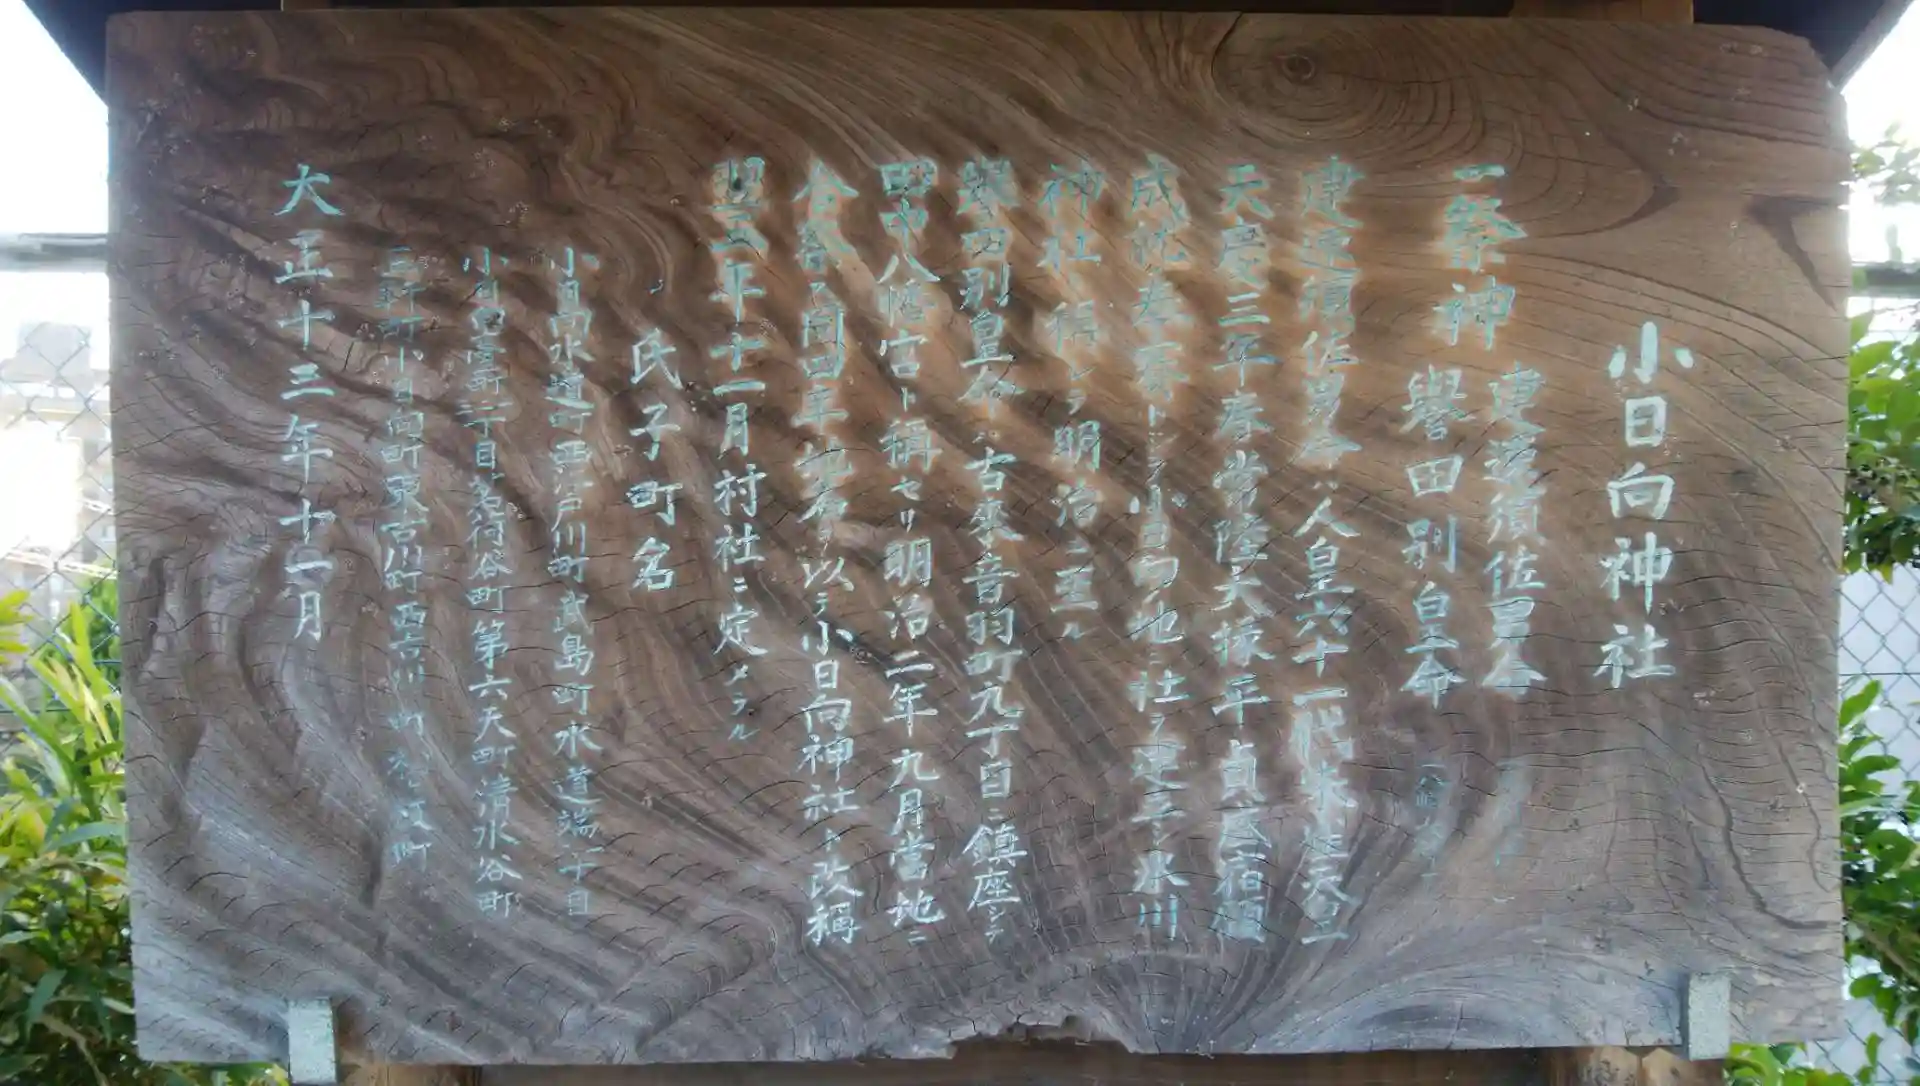 小日向神社
一祭神
建速須佐男命
譽田別皇命
建速須佐男命ハ人皇六十一代朱雀天皇
天慶三年春常陸大掾平貞盛宿願
成就奉賽トシテ小日向ノ地ニ社ヲ建立シ氷川
神社ト稱シテ明治ニ至ル
譽田別皇命ハ古來音羽町九丁目ニ鎮座シテ
田中八幡宮ト稱セリ明治二年九月當地ニ
合祭ス同四年地名ヲ以テ小日向神社ト改稱
翌五年十一月村社ニ定メラル
氏子町名
小日向水道町西江戸川町武島町水道端一丁目
小日向臺町一丁目茗荷谷町第六天町清水谷町
三軒町小日向町東古川町西古川町松ヶ枝町
大正十三年十二月